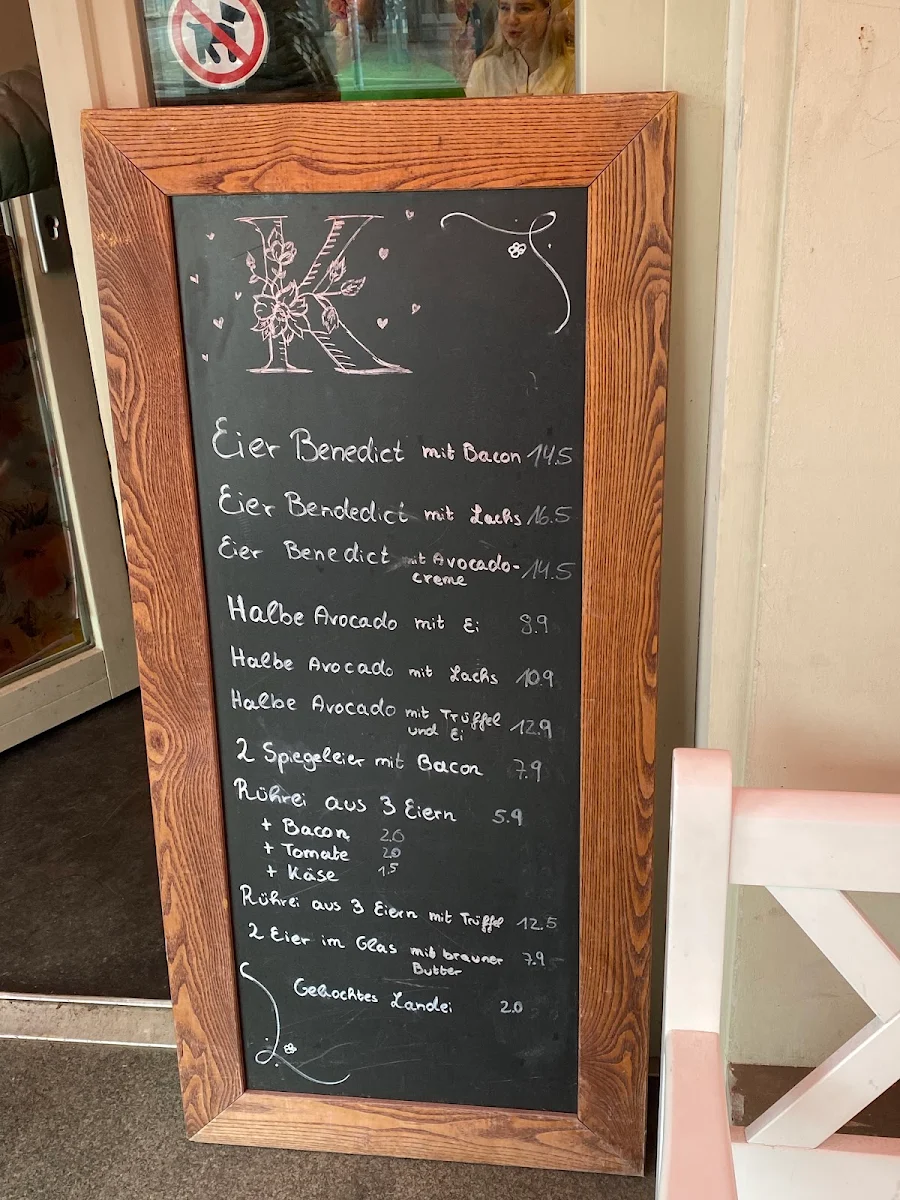 K
Eier Benedict mit Bacon 14.5
Eier Bendedict mit Lachs 16.5
Eier Benedict mit Avocado- 14.5
creme
Halbe Avocado mit Ei 9.9
Halbe Avocado mit Lachs 10.9
Halbe Avocado mit Trüffel 12.9
und Ei
2 Spiegeleier mit Bacon 7.9
Rührei aus 3 Eiern 5.9
+ Bacon 2.0
+ Tomate 2.0
+ Käse 1.5
Rührei aus 3 Eiern mit Trüffel 12.5
2 Eier im Glas mit brauner 7.9
Butter
Gekochtes Landei 2.0